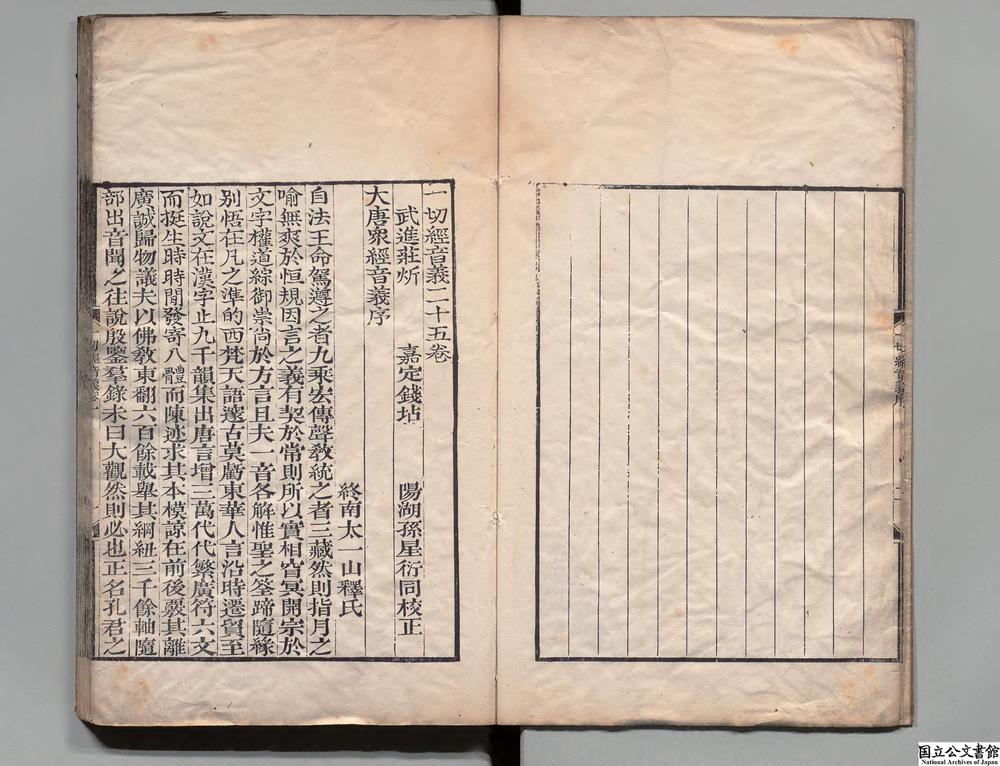 一切經音義二十五卷
武進莊炘　嘉定錢坫　陽湖孫星衍同校正
大唐衆經音義序
終南太一山釋氏
自法王命駕遵之者九乘宏傳聲敎統之者三藏然則指月之
喻無爽於恒規因言之義有契於常則所以實相窅冥開宗於
文字權道綜御崇尚於方言且夫一音各解惟聖之筌蹄隨緣
别悟在凡之準的西梵天語邃古莫虧東華人言沿時遷貿至
如說文在漢字止九千韻集出唐言增三萬代代繁廣符六文
而挺生時時閒發寄八體而陳迹求其本模諒在前後覈其離
廣誠歸物議夫以佛敎東翻六百餘載舉其綱紐三千餘軸隨
部出音聞之往說殷鑒羣錄未曰大觀然則必也正名孔君之
国立公文書館
National Archives of Japan